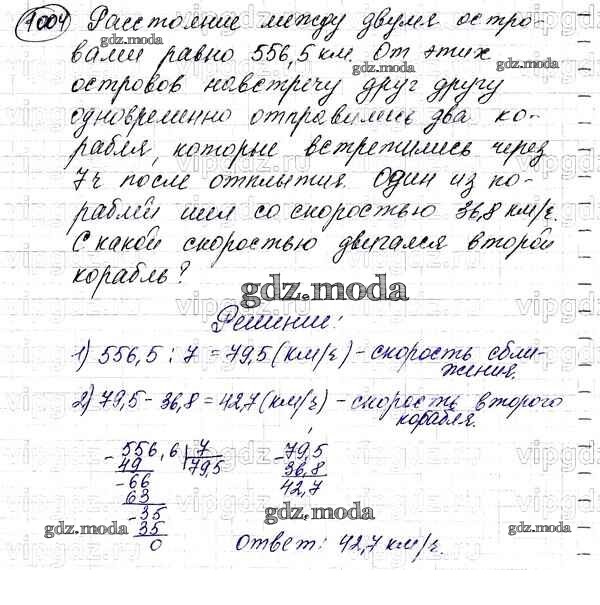 1004) Расстояние между двумя остро-
вами равно 556,5 км. От этих
островов навстречу друг другу
одновременно отправились два ко-
рабля, которые встретились через
7 ч после отплытия. Один из ко-
раблей шел со скоростью 36,8 км/ч.
С какой скоростью двигался второй
корабль?
gdz.moda
Решение:
1) 556,5 : 7 = 79,5 (км/ч) - скорость сбли-
жения.
2) 79,5 - 36,8 = 42,7 (км/ч) - скорость второго
корабля.
- 556,6 | 7
49 79,5
- 66
63
- 35
35
0
- 79,5
36,8
42,7
Ответ: 42,7 км/ч.